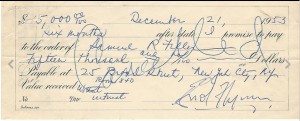 $15,000 00/100 December 21, 1953
Six months after date I promise to pay
to the order of Samuel R.
Fifteen Thousand and no/100 Dollars
Payable at 25 Broad Street, New York City, N.Y.
Value received
interest